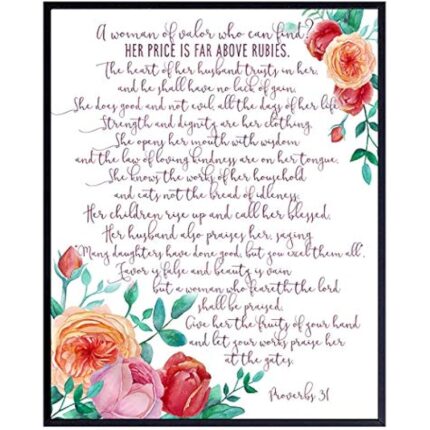 A woman of valor who can find?
HER PRICE IS FAR ABOVE RUBIES.
The heart of her husband trusts in her,
and he shall have no lack of gain.
She does good and not evil all the days of her life.
Strength and dignity are her clothing.
She opens her mouth with wisdom
and the law of loving kindness are on her tongue.
She knows the works of her household
and eats not the bread of idleness.
Her children rise up and call her blessed.
Her husband also praises her, saying
"Many daughters have done good, but you excel them all".
Favor is false and beauty is vain
but a woman who feareth the lord
shall be praised.
Give her the fruits of your hand
and let your works praise her
at the gates.
Proverbs 31